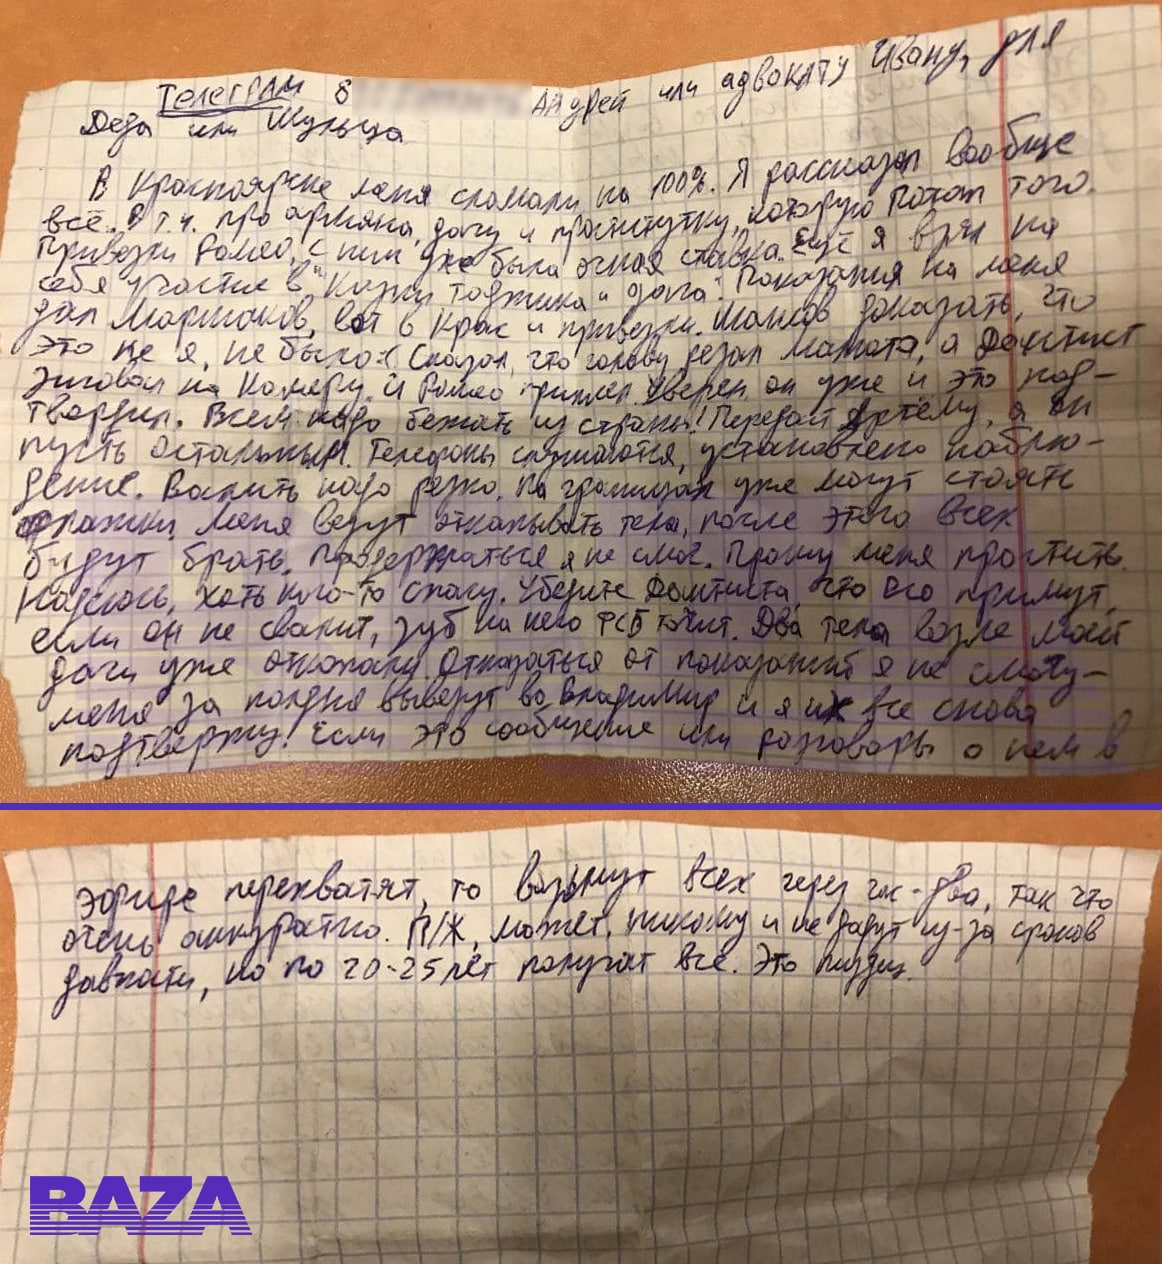 Телеграм 8 Андрей или адвокату Ивану, для
Деда или Шульца
В Красноярске меня сломали на 100%. Я рассказал вообще
всё. В т.ч. про армяна, дачу и проститутку, которую Потап того.
Привезли Ромео, с ним уже была очная ставка. Ещё я взял на
себя участие в "Казни таджика и дага". Показания на меня
дал Маршаков, вот в Крас и привезли. Шансов доказать, что
это не я, не было :( Сказал, что голову резал Матота, а Дантист
зиговал на камеру. И Ромео Уверен он уже и это под-
твердил. Всем надо бежать из страны! Передай Артёму, а он
пусть остальным. Телефоны слушаются, установлено наблю-
дение. Валить надо резко. На границах уже могут стоять
флажки. Меня везут откапывать тела, после этого всех
будут брать. Продержаться я не смог. Прошу меня простить.
Надеюсь, хоть кого-то спасу. Убедите Дантиста, что его примут,
если он не свалит, зуб на него ФСБ точит. Два тела возле моей
дачи уже откопали. Отказаться от показаний я не смогу-
меня за полдня вывезут во Владимир и я их все снова
подтвержу! Если это сообщение или разговоры о нем в
эфире перехватят, то возьмут всех через час-два, так что
очень аккуратно. П/Ж, может, никому и не дадут из-за сроков
давности, но по 20-25 лет получат все. Это пиздец.
BAZA